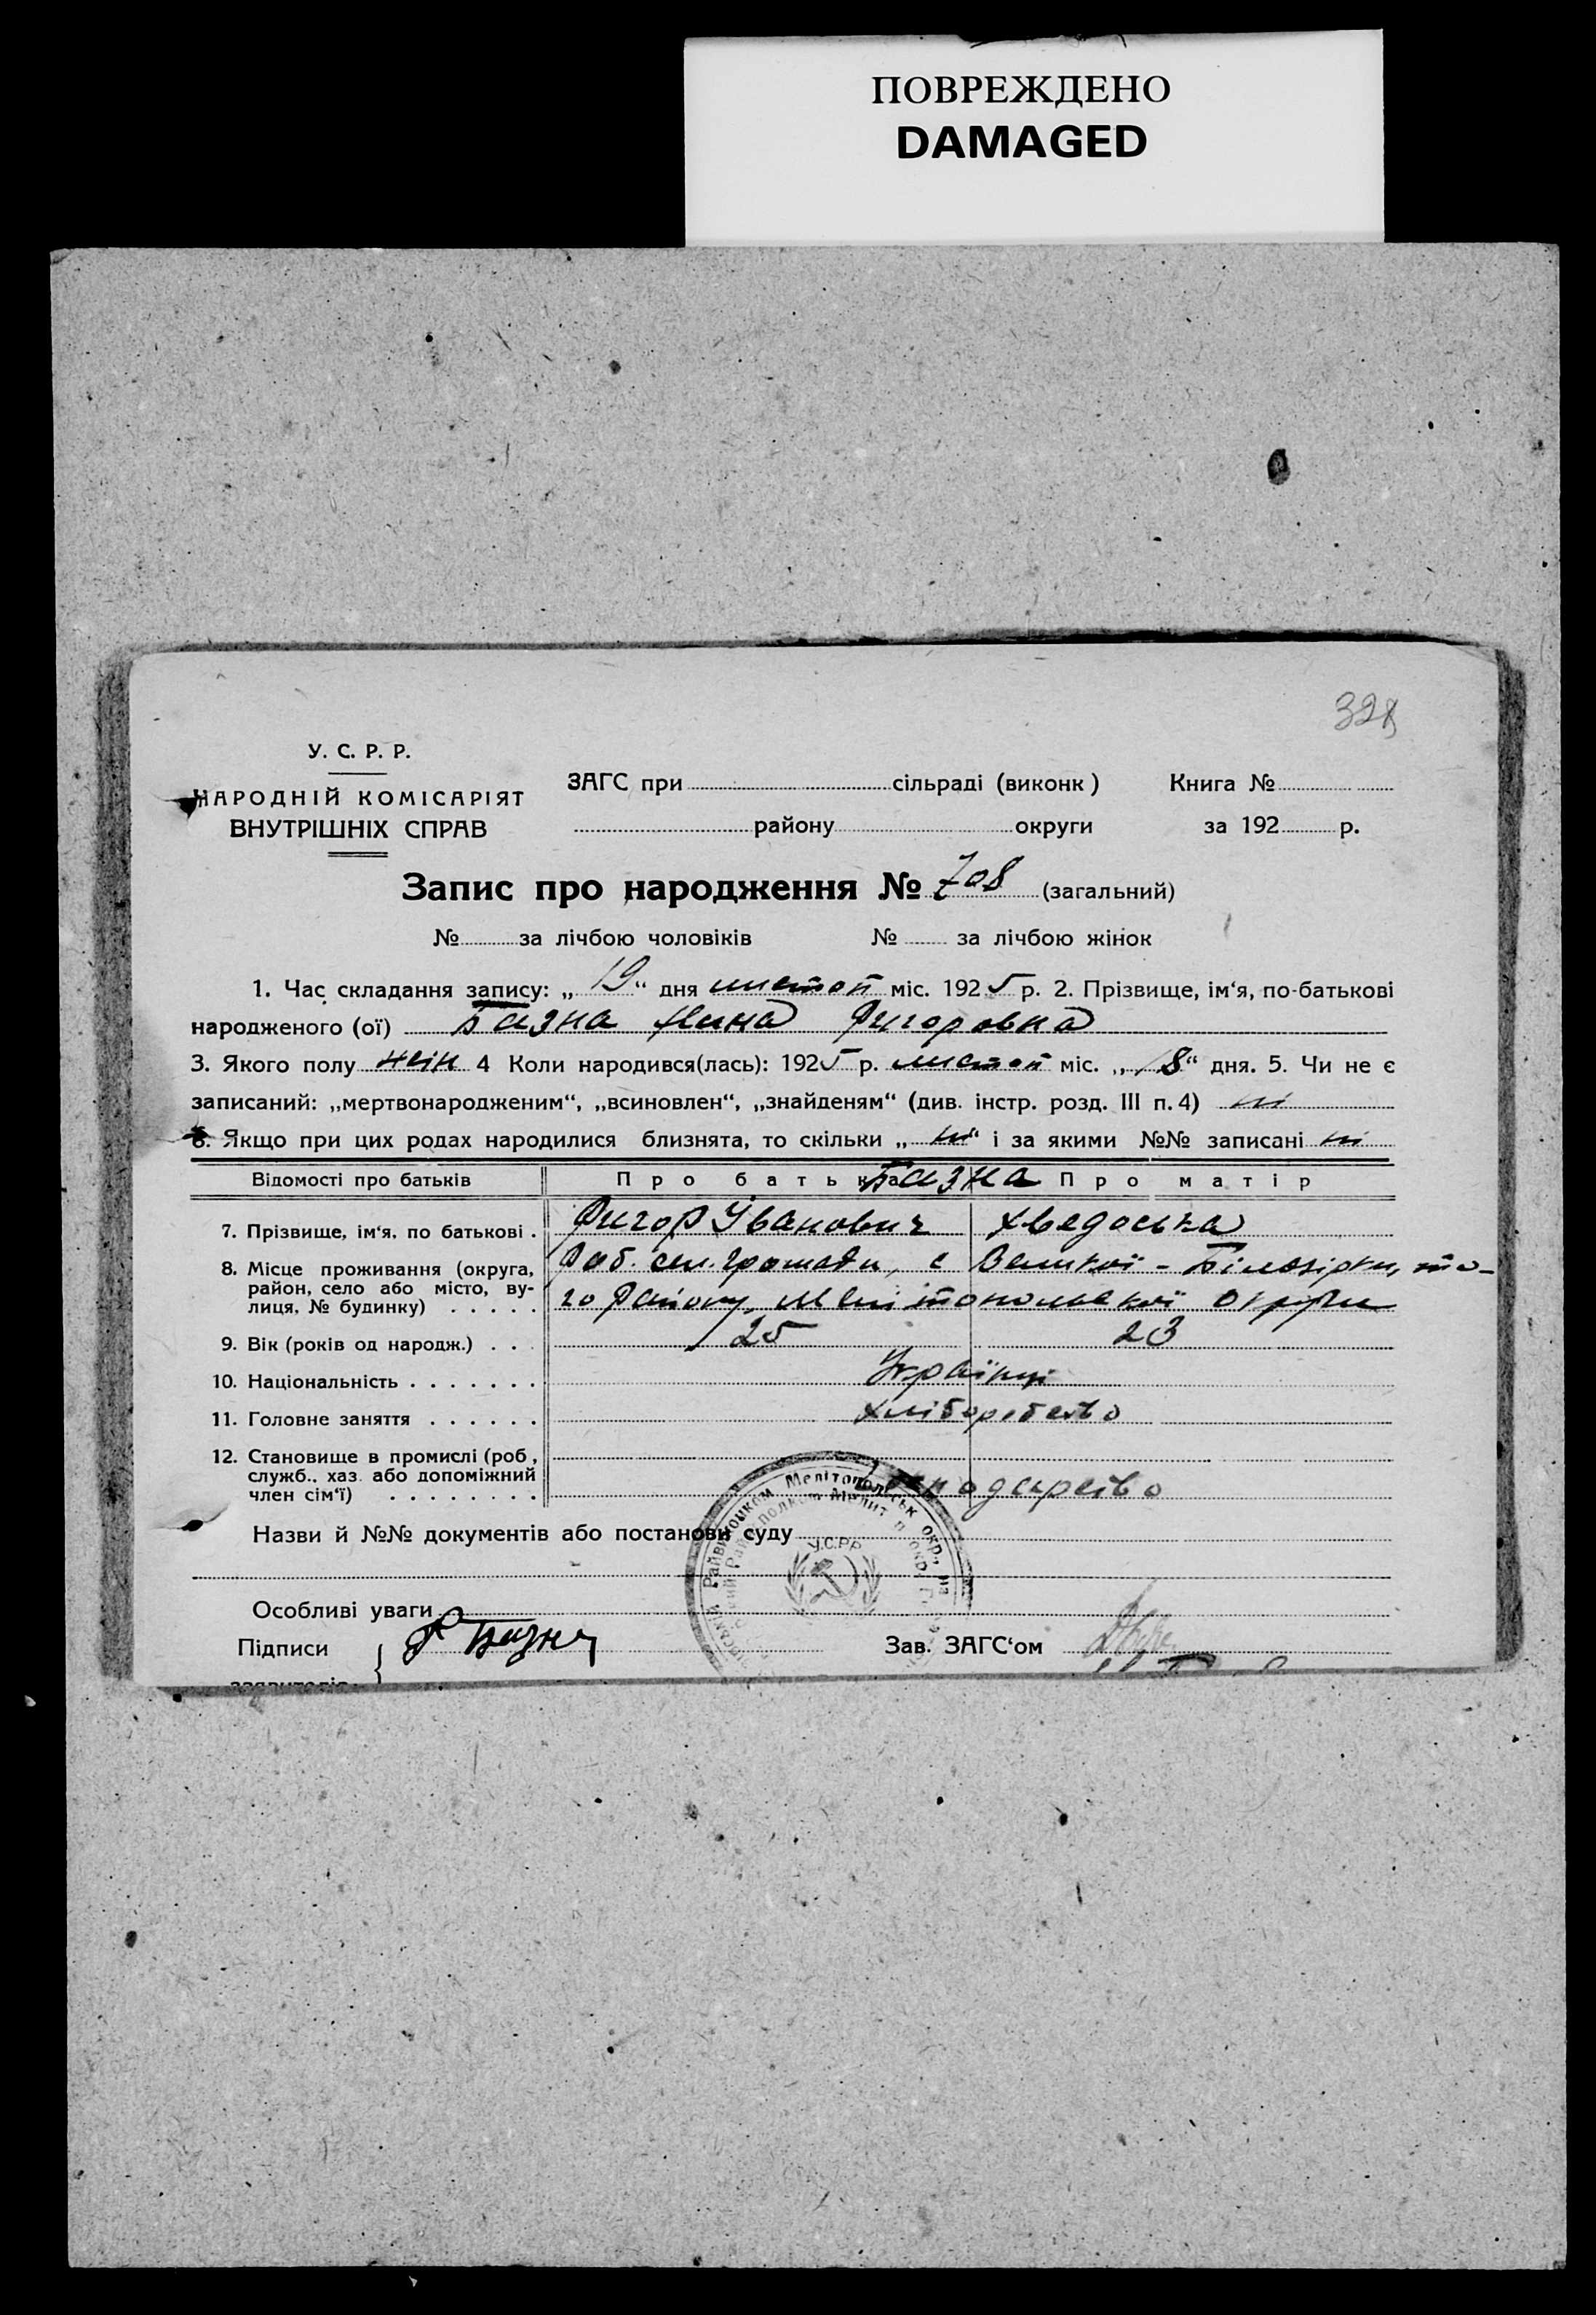 ПОВРЕЖДЕНО
DAMAGED
328
У. С. Р. Р.
НАРОДНІЙ КОМІСАРІЯТ
ВНУТРІШНІХ СПРАВ
ЗАГС при сільраді (виконк)
Книга №
району округи
за 192 р.
Запис про народження № 708 (загальний)
№ за лічбою чоловіків № за лічбою жінок
1. Час складання запису: „ 19 “ дня листоп міс. 1925 р. 2. Прізвище, ім‘я, по-батькові
народженого (ої) Базна Нина Григоровна
3. Якого полу жін 4 Коли народився(лась): 1925 р. листоп міс. „ 18 “ дня. 5. Чи не є
записаний: „мертвонародженим“, „всиновлен“, „знайденям“ (див. інстр. розд. III п. 4) ні
6. Якщо при цих родах народилися близнята, то скільки „ ні “ і за якими №№ записані ні
Відомості про батьків Про батька Базна Про матір
7. Прізвище, ім‘я, по батькові . Григор Іванович Хведоська
8. Місце проживання (округа, район, село або місто, вулиця, № будинку) . . . . . сел. громади, с Великої - Білозірки, то-
го Району, Мелітопольської округи
9. Вік (років од народж.) . . . 25 23
10. Національність . . . . . . . Українці
11. Головне заняття . . . . . . Хліборобство
12. Становище в промислі (роб, служб., хаз. або допоміжний член сім‘ї) . . . . . . . . господарство
Назви й №№ документів або постанови суду
У.С.Р.Р.
Особливі уваги
Підписи Базна
Зав. ЗАГС‘ом
заявителів